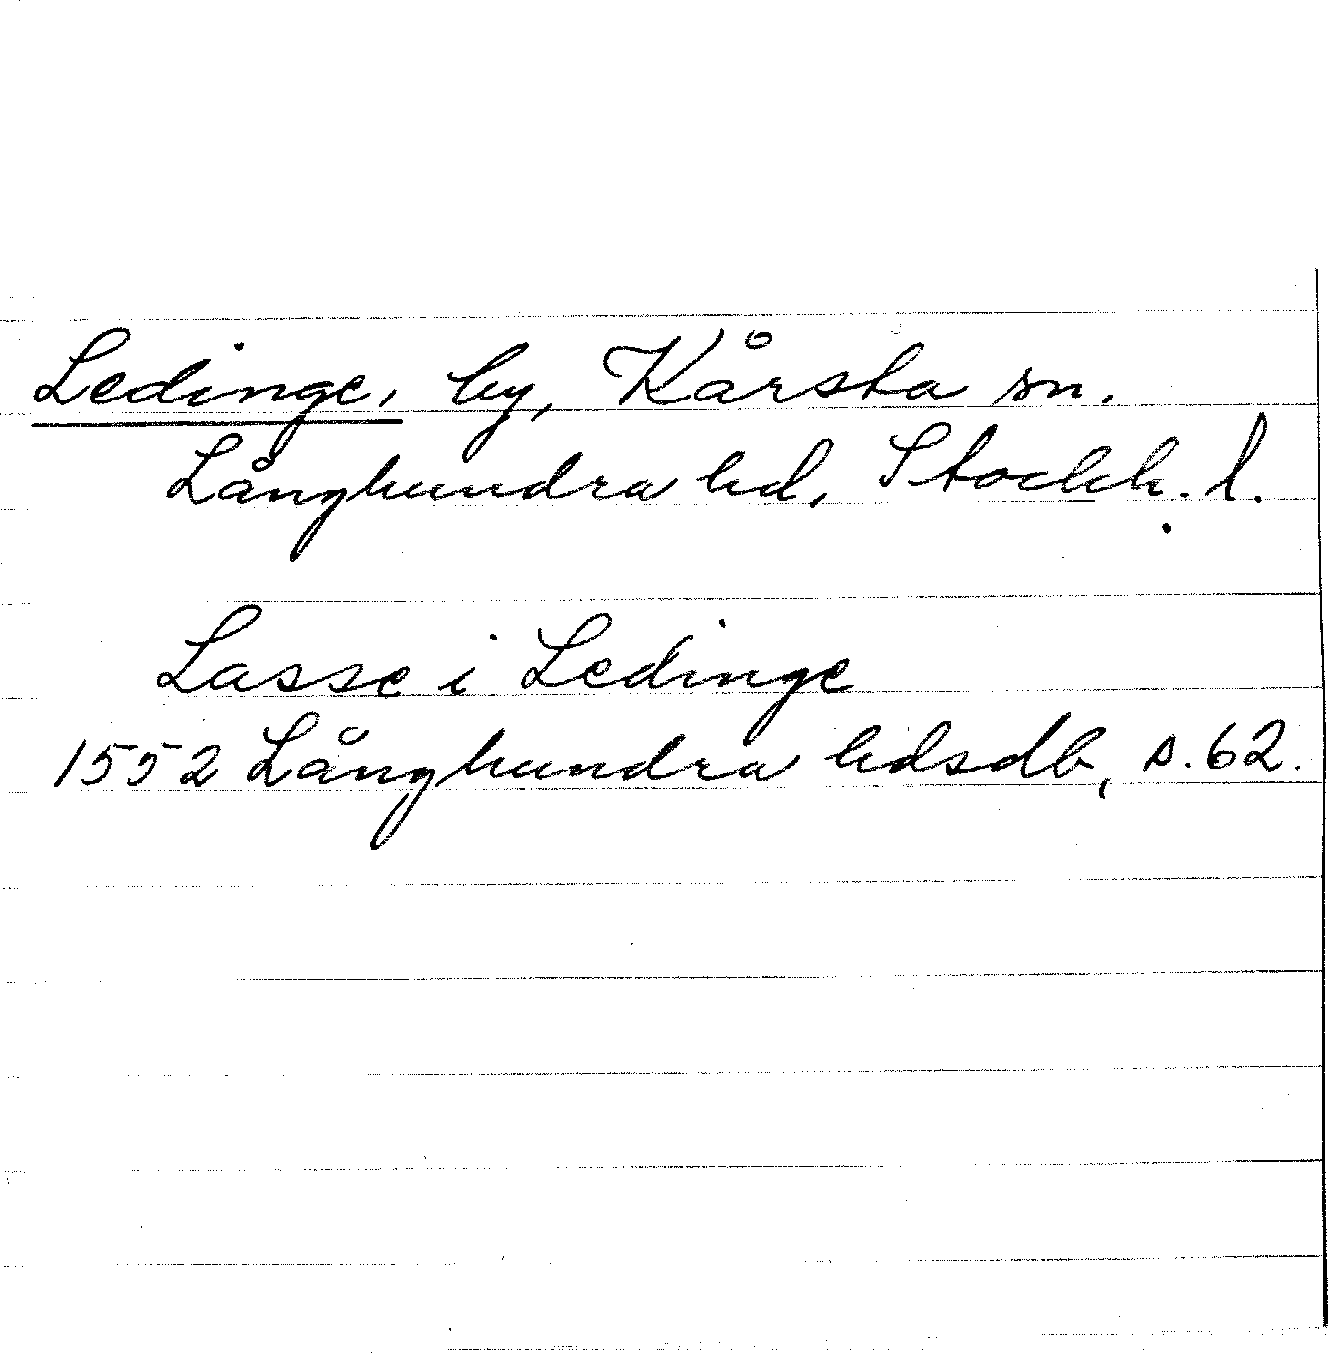 Ledinge, by, Kårsta sn.
Långhundra hd, Stockh. l.
Lasse i Ledinge
1552 Långhundra hdsdb, s. 62.